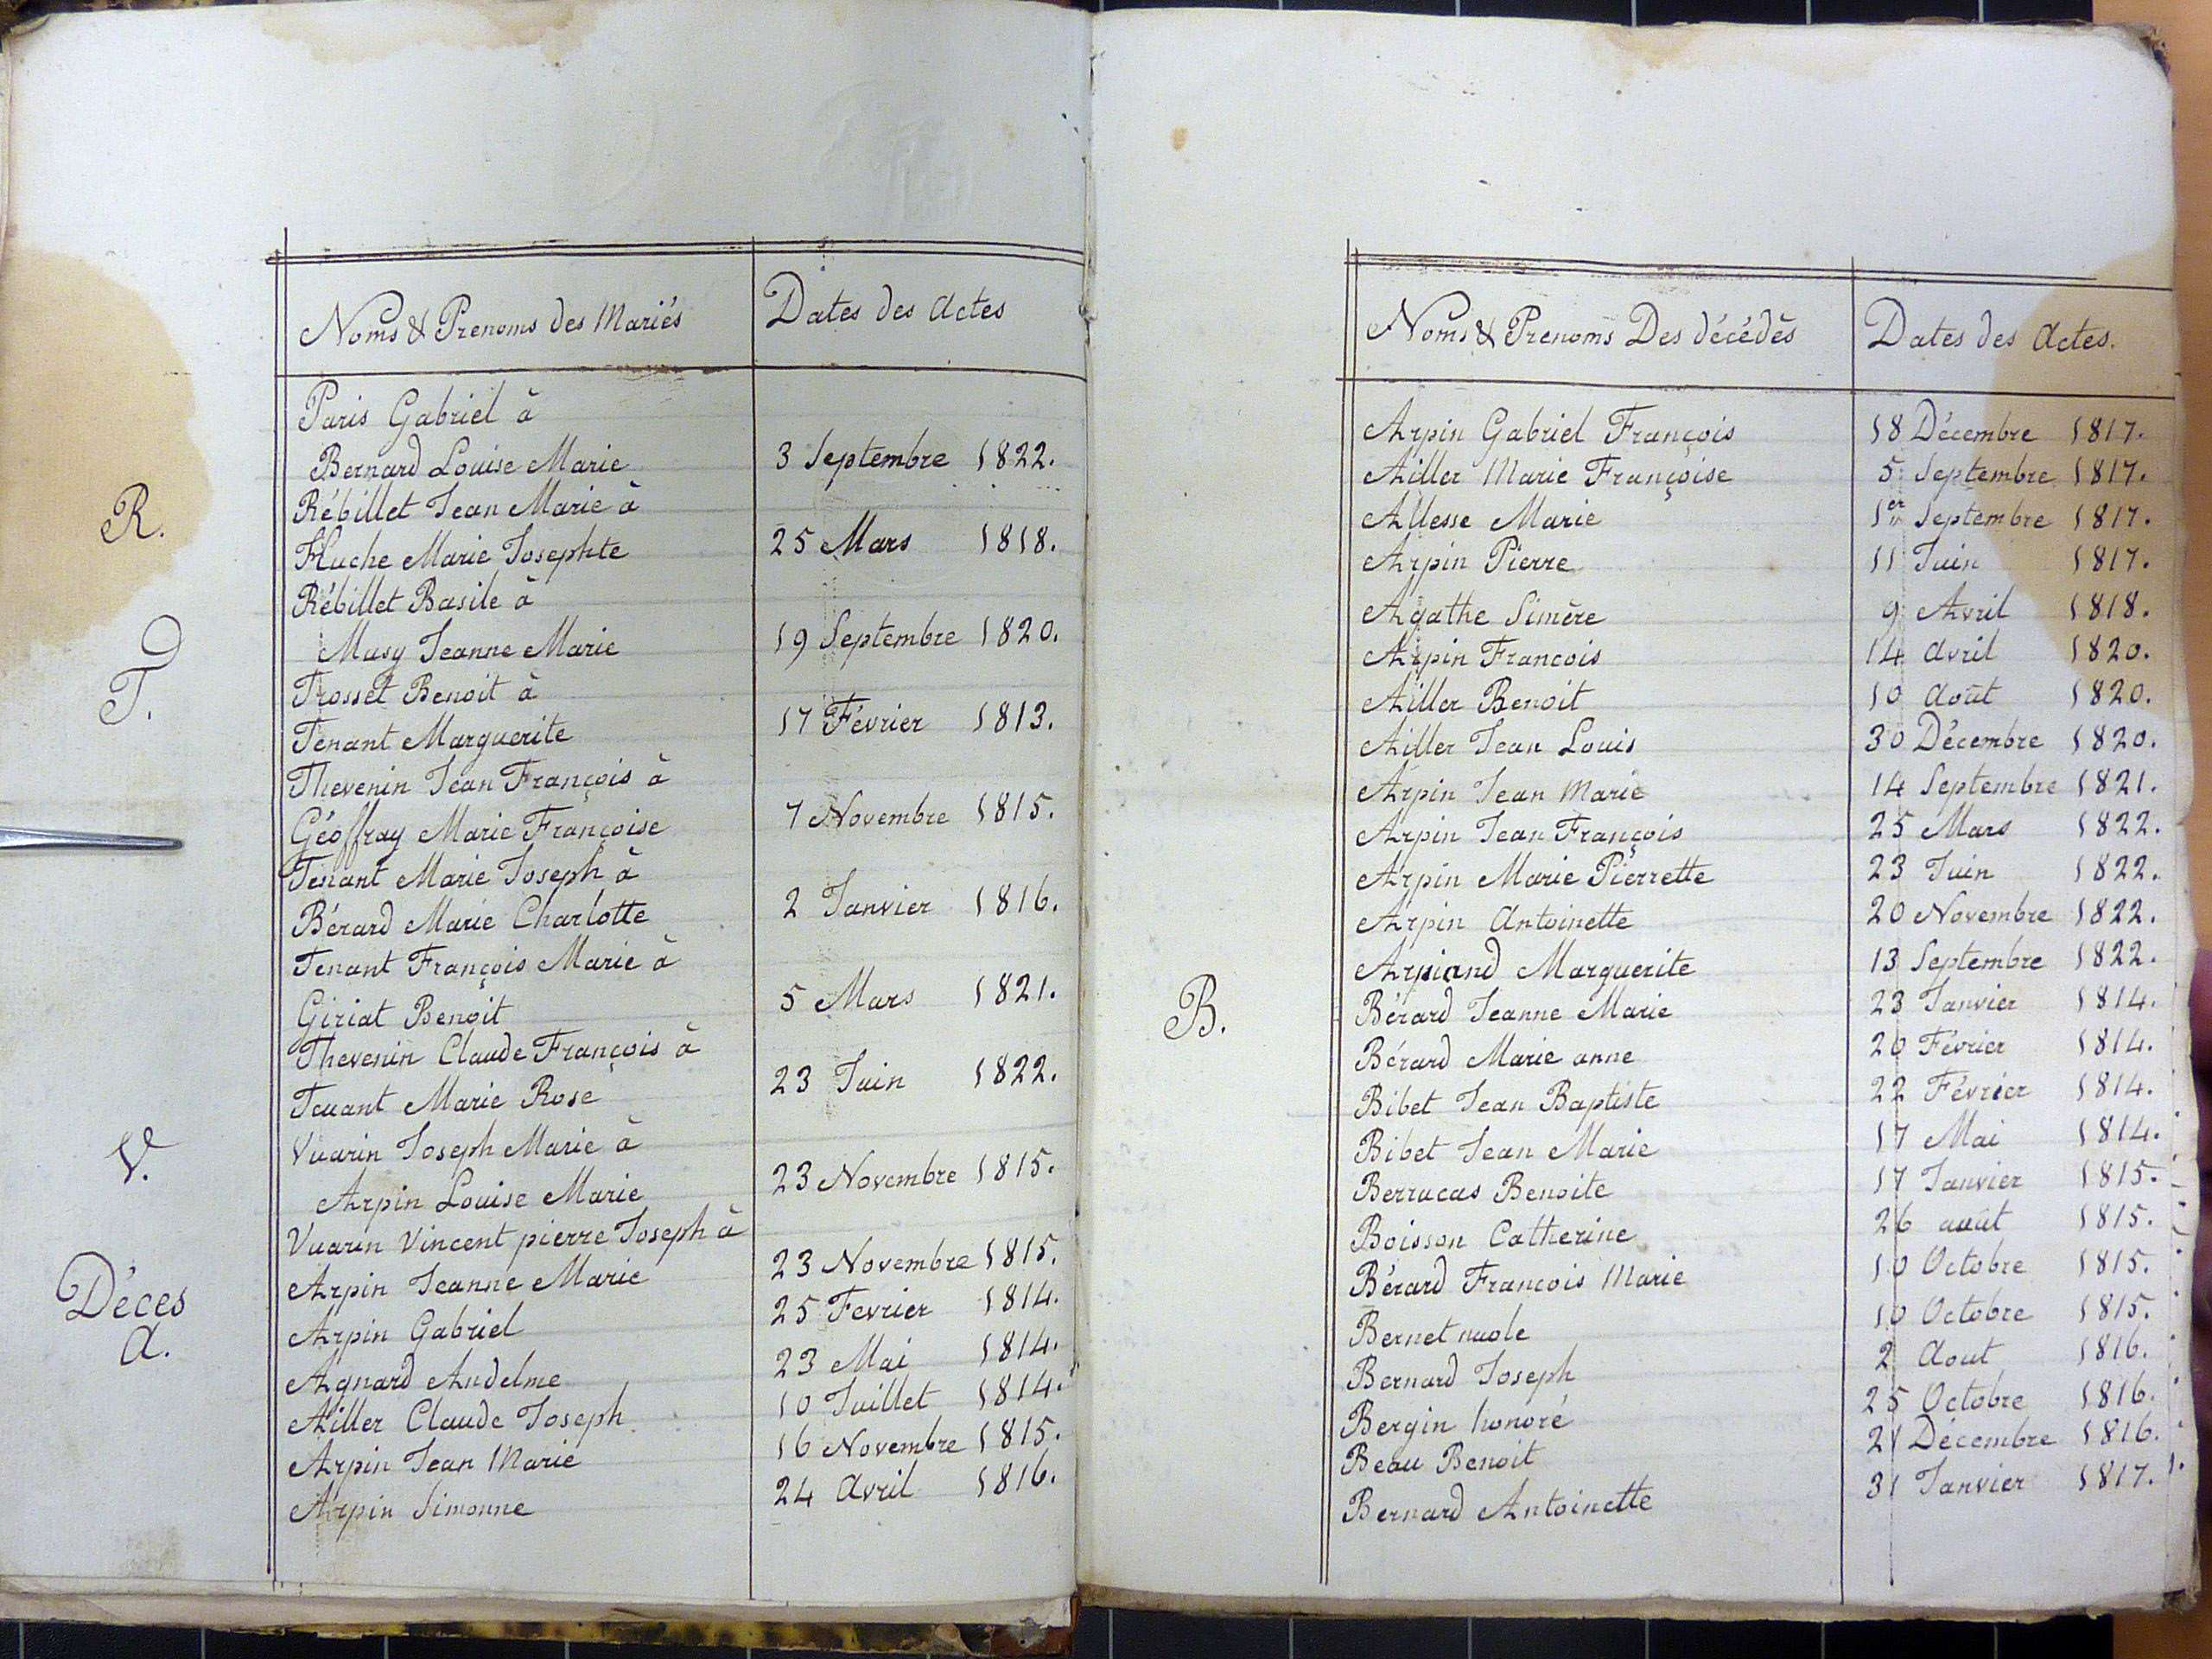 Noms & Prenoms des Mariés Dates des Actes
Paris Gabriel à
Bernard Louise Marie 3 Septembre 1822.
R. Rébillet Jean Marie à
Huche Marie Josephte 25 Mars 1818.
Rébillet Basile à
Musy Jeanne Marie 19 Septembre 1820.
T. Trosset Benoit à
Tenant Marguerite 17 Février 1813.
Thevenin Jean François à
Géoffray Marie Françoise 7 Novembre 1815.
Tenant Marie Joseph à
Bérard Marie Charlotte 2 Janvier 1816.
Tenant François Marie à
Giriat Benoit 5 Mars 1821.
Thevenin Claude François à
Tenant Marie Rose 23 Juin 1822.
V. Vuarin Joseph Marie à
Arpin Louise Marie 23 Novembre 1815.
Vuarin Vincent pierre Joseph à
Arpin Jeanne Marie 23 Novembre 1815.
Déces
A. Arpin Gabriel 25 Fevrier 1814.
Agnard Andelme 23 Mai 1814.
Ailler Claude Joseph 10 Juillet 1814.
Arpin Jean Marie 16 Novembre 1815.
Arpin Simonne 24 Avril 1816.
Noms & Prenoms Des décédés Dates des Actes.
Arpin Gabriel François 18 Décembre 1817.
Ailler Marie Françoise 5 Septembre 1817.
Allesse Marie 1er Septembre 1817.
Arpin Pierre 11 Juin 1817.
Agathe Simère 9 Avril 1818.
Arpin Francois 14 Avril 1820.
Ailler Benoit 10 Août 1820.
Ailler Jean Louis 30 Décembre 1820.
Arpin Jean Marie 14 Septembre 1821.
Arpin Jean François 25 Mars 1822.
Arpin Marie Pierrette 23 Juin 1822.
Arpin Antoinette 20 Novembre 1822.
Arpiand Marguerite 13 Septembre 1822.
B. Bérard Jeanne Marie 23 Janvier 1814.
Bérard Marie anne 20 Février 1814.
Bibet Jean Baptiste 22 Février 1814.
Bibet Jean Marie 17 Mai 1814.
Berrucas Benoite 17 Janvier 1815.
Boisson Catherine 26 août 1815.
Bérard Francois Marie 10 Octobre 1815.
Bernet 10 Octobre 1815.
Bernard Joseph 2 Aout 1816.
Bergin honoré 25 Octobre 1816.
Beau Benoit 21 Décembre 1816.
Bernard Antoinette 31 Janvier 1817.